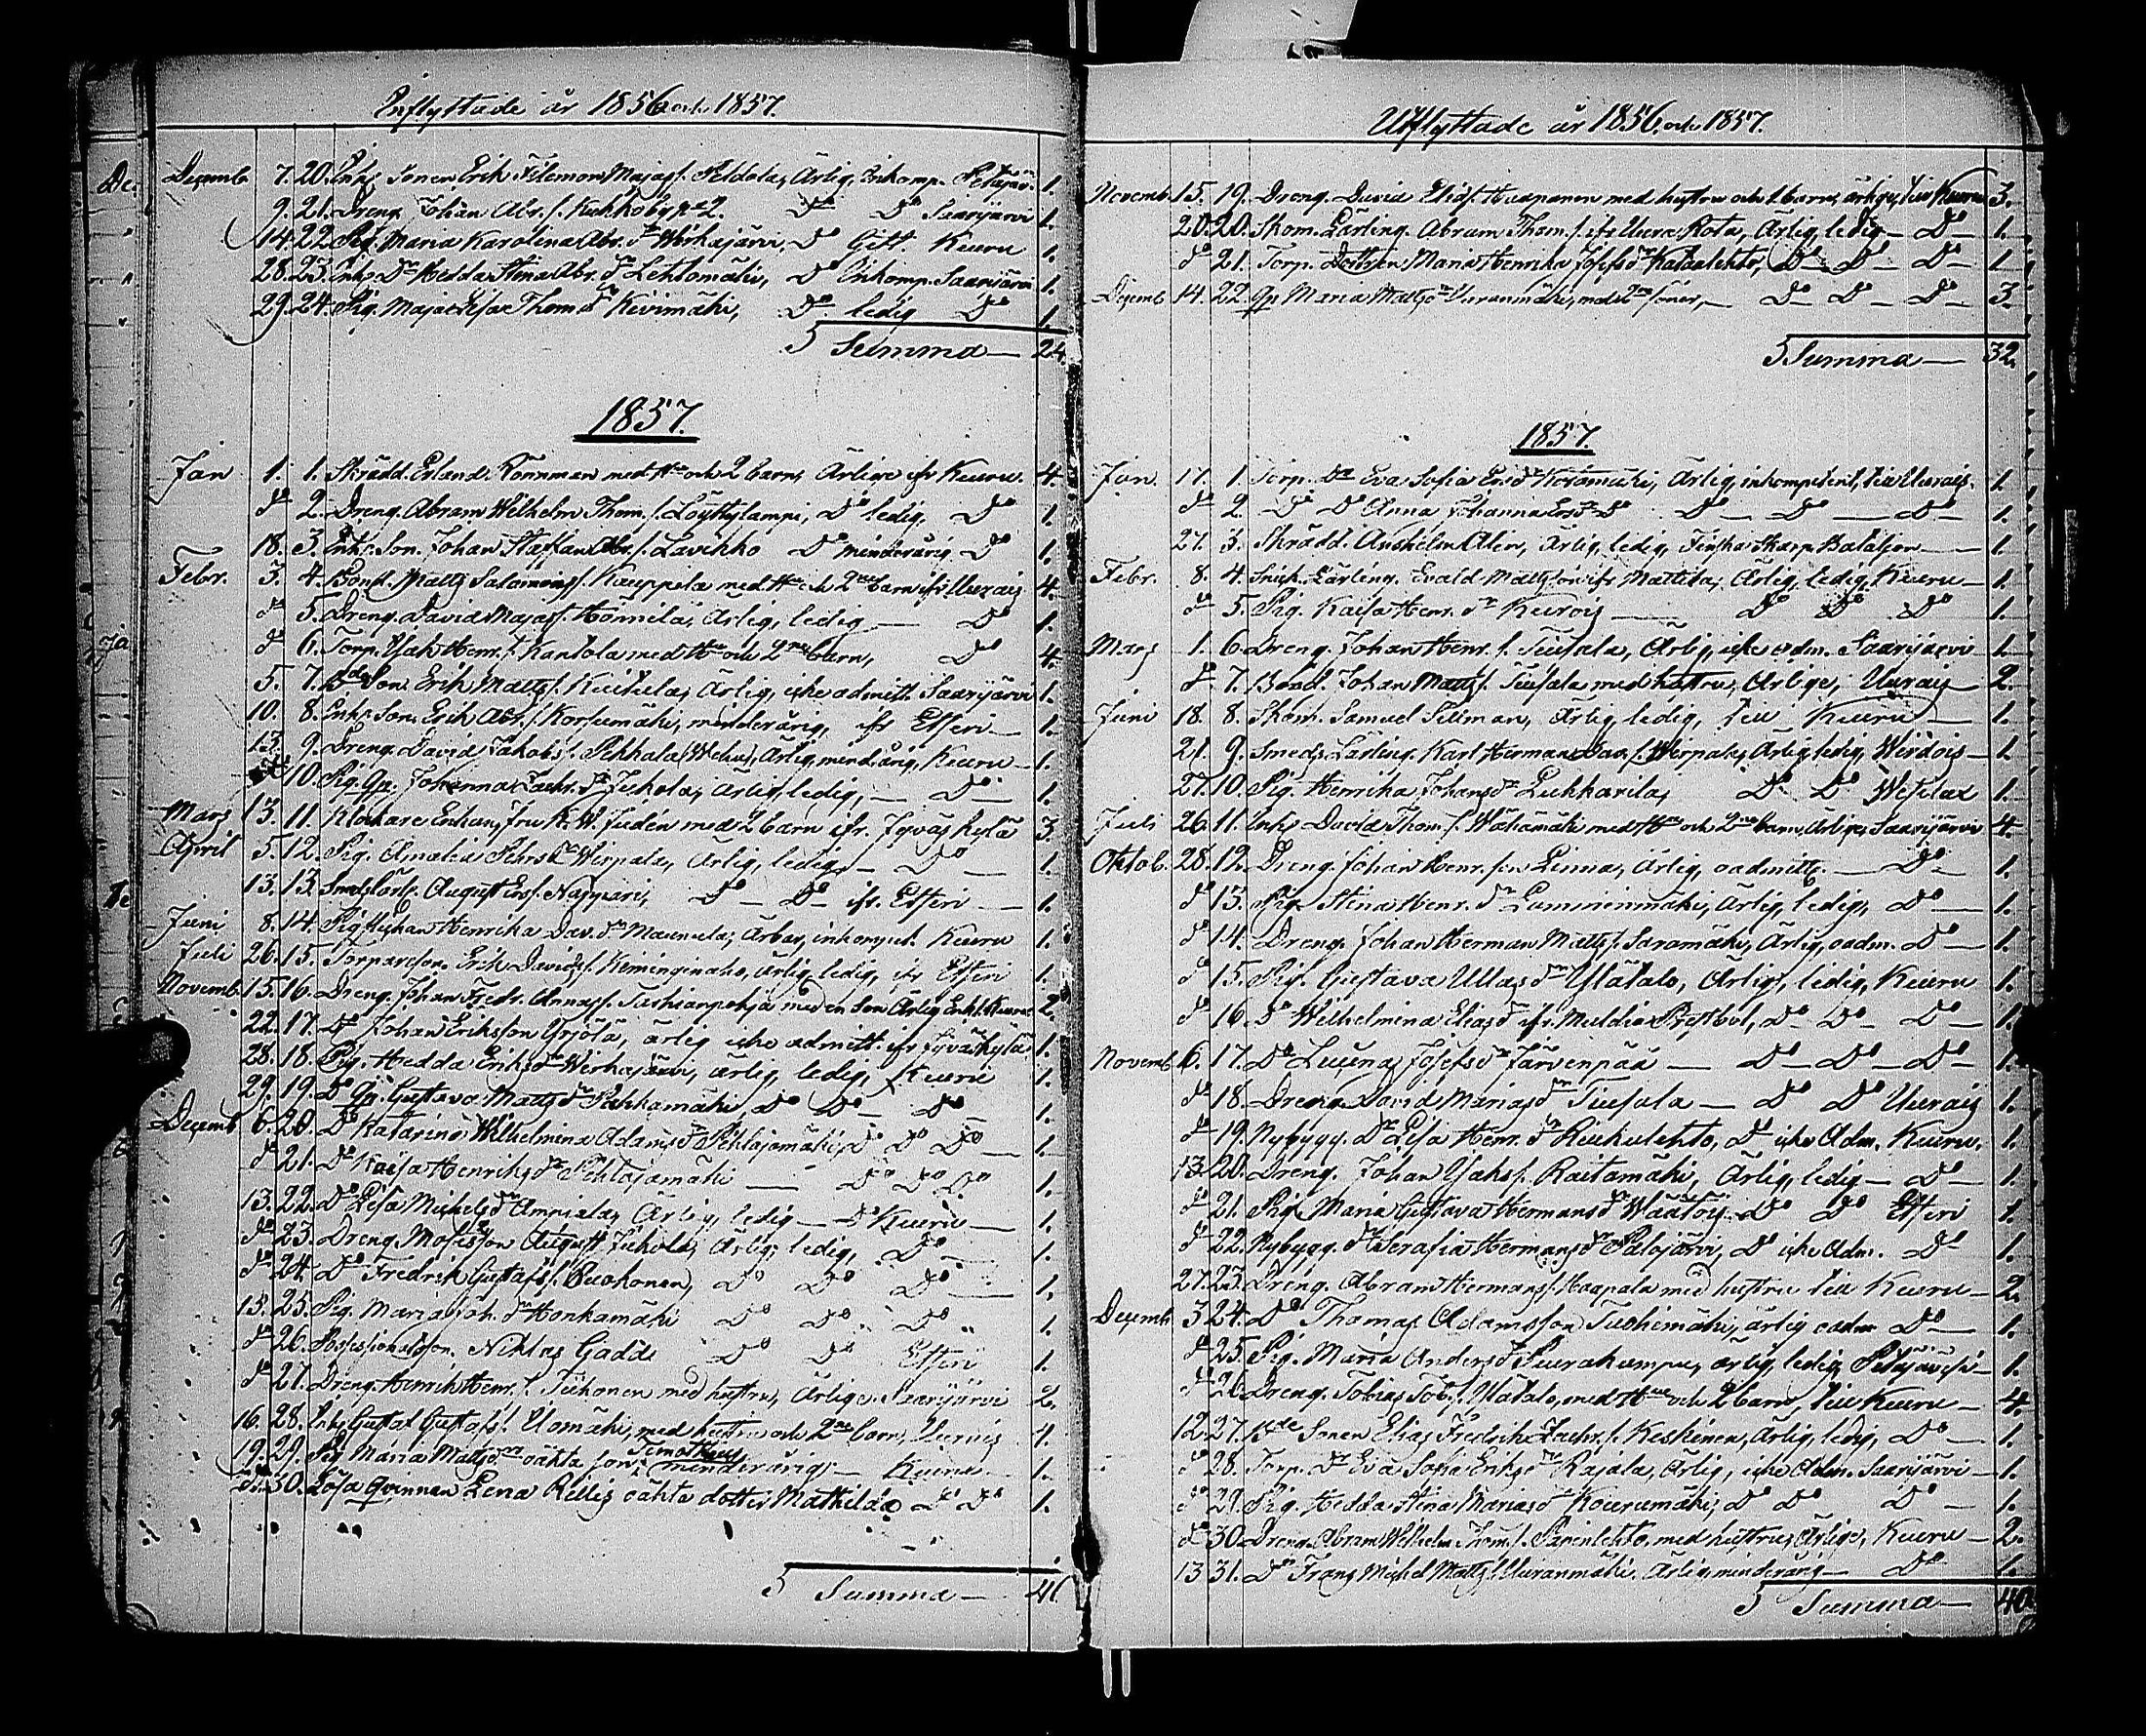 Inflyttade år 1856 och 1857.
Decemb 7. 20. Erik Filemon Majas s. Peldola, Ärlig, Inkomp. Petäjäv. 1.
9. 21. Dreng Johan Abr. s. Kuhkoby No 2. Do Do Saarijärvi 1.
14. 22. Pig. Maria Karolina Abr. dr Wirkajärvi, Do Gift Keuru 1.
28. 23. Enk. Dr Hedda Stina Abr. dr Lehtomäki, Do Inkomp. Saarijärvi 1.
29. 24. Pig. Maja Lisa Thom dr Kivimäki, Do ledig Do 1.
Summa — 24.
1857.
Jan 1. 1. Skrädd. Erland Rönnman med Hu och 2 barn, Ärlige ifr Keuru. 4.
do 2. Dreng. Abram Wilhelm Thom. s. Löyttylampi, Do ledig, Do 1.
18. 3. Enk. Son. Johan Staffan Abr. s. Lavikko Do minderårig Do 1.
Febr. 3. 4. Matts Salomons s. Kauppila med Hu och 2ne barn ifr Uurais 4.
do 5. Dreng David Majas s. Hörnilä, Ärlig, ledig — Do 1.
do 6. Torp. Isak Henr. s. Kantola med Hu och 2ne barn, Do 4.
5. 7. Bde Son Erik Matts s. Kuikula, Ärlig, icke admitt. Saarijärvi 1.
10. 8. Enk. Son. Erik Abr. s. Korsumäki, minderårig, ifr Etseri — 1.
13. 9. Dreng. David Jakobs s. Pihkala (Wehu), Ärlig, mind.årig, Keuru — 1.
10. Pig. Qp. Johanna Zachr. dr Jukola, Ärlig, ledig, — Do — 1.
Mars 13. 11. Klockare Enkan, fru K. W. Judén med 2 barn ifr. Jyväskylä 3.
April 5. 12. Pig. Amalia Pehrs dr Wirpala, Ärlig, ledig — Do — 1.
13. 13. August Ers s. Nappari, Do — Do — ifr. Etseri — 1.
Juni 8. 14. Henrika Dav. dr Maunula, Ärbar, inkompet. Keuru 1.
Juli 26. 15. Torpareson. Erik Davids s. Keminginaho, ärlig, ledig, ifr Etseri 1.
Novemb. 15. 16. Dreng. Johan Fredr. Annas s. med en Son Ärlig Enkl. Keuru 2.
22. 17. Do Johan Eriksson Yrjölä, ärlig icke admitt. ifr Jyväskylä 1.
28. 18. Pig. Hedda Eriks dr Wirkajärvi, ärlig, ledig, Keuru 1.
29. 19. Do Qp. Gustava Matts dr Pahkamäki, Do Do — Do 1.
Decemb 6. 20. Do Katarina Wilhelmina Adams dr Pihlajamäki, Do Do Do — 1.
do 21. Do Kaisa Henriks dr Pihlajamäki — Do Do Do 1.
13. 22. Do Lisa Michels dr Ampiala, Ärlig, ledig — Do Keuru — 1.
do 23. Dreng. Moses son August Jukola, Ärlig, ledig, Do — 1.
do 24. Do Fredrik Gustafs s. Puohonen, Do Do Do — 1.
13. 25. Pig. Maria Joh. dr Honkamäki Do Do Do 1.
do 26. Niklas Gadd Do Do Etseri 1.
do 27. Dreng. Henrik Henr. s. Tiihonen med hustru, Ärlige Saarijärvi 2.
16. 28. Gustaf Gustafs s. Uomäki, med hustru och 2ne barn, Uurais 4.
19. 29. Pig. Maria Matts dr oäkta son Timotheus minderårig, — Keuru — 1.
do 30. Lösa Qvinnan Lena Rillis oäkta dotter Mathilda Do Do 1.
Summa — 41.
Utflyttade år 1856. och 1857.
Novemb. 15. 19. Dreng. David Elias s. Haapanen med hustru och 1 barn, ärlige, till Keuru 3.
20. 20. Skom. Lärling. Abram Thom. s. ifr Uura Rota, Ärlig, ledig — Do — 1.
do 21. Torp. Dottren Maria Henrika Josefs dr Katalehto, Do — Do — Do — 1.
Decemb 14. 22. Qp Maria Matts dr Uuranmäki, med 2ne söner, — Do — Do — Do — 3.
Summa — 32.
1857.
Jan. 17. 1. Torp. Dr Eva Sofia Ers dr Kotamäki, Ärlig, inkompetent, till Uurais. 1.
do 2. Do Do Anna Johanna Ers dr Do Do — Do — Do — 1.
27. 3. Skrädd. Anshelm Alin, Ärlig, ledig, Finska Skarp. Bataljon — 1.
Febr. 8. 4. Snick. Lärling. Evald Mattsson ifr Mattila, Ärlig, ledig, Keuru — 1.
do 5. Pig. Kaisa Henr. dr Kurois — Do Do Do 1.
Mars 1. 6. Dreng. Johan Henr. s. Tuisala, Ärlig, icke adm. Saarijärvi — 1.
do 7. Bond. Johan Matts s. Tuisala med hustru, Ärlige, Uurais — 2.
Juni 18. 8. Skom. Samuel Tillman, Ärlig, ledig, till Keuru — 1.
21. 9. Smeds Lärling. Karl Herman Dav. s. Wirpala, Ärlig, ledig, Werdois — 1.
27. 10. Pig. Henrika Johans dr Liehkarila, Do Do Wesilax 1.
Juli 26. 11. Inh. David Thom. s. Wätämäki med Hu och 2ne barn, Ärlige, Saarijärvi 4.
Oktob. 28. 12. Dreng. Johan Henr. son Linna, Ärlig, oadmitt. — Do — 1.
do 13. Pig. Stina Henr. dr Lamminmäki, Ärlig, ledig, Do — 1.
do 14. Dreng. Johan Herman Matts s. Saramäki, Ärlig, oadm. Do — 1.
do 15. Pig. Gustava Ullas dr Ylätalo, Ärlig, ledig, Keuru 1.
do 16. Do Wilhelmina Elias dr ifr. Muldia Prestbol, Do — Do — Do — 1.
Novemb 6. 17. Do Luina Josefs dr Järvenpää — Do — Do — Do — 1.
do 18. Dreng David Marias s. Tuisala — Do Do Uurais 1.
do 19. Nybygg. Dr Lisa Henr. dr Riukulehto, Do icke Adm. Keuru. 1.
13. 20. Dreng. Johan Isaks s. Raitamäki, Ärlig, ledig — Do — 1.
do 21. Pig. Maria Gustava Hermans dr Wäätöis Do Do Etseri 1.
do 22. Nybygg. Dr Serafia Hermans dr Palojärvi, Do icke Adm. Do — 1.
27. 23. Dreng. Abram Hermans s. Haapala med hustru till Keuru — 2.
Decemb 3. 24. Do Thomas Adamsson Tuohimäki, ärlig oadm Do — 1.
do 25 Pig. Maria Anders dr Peurakumpu, ärlig, ledig, Petäjävesi — 1.
do 26. Dreng. Tobias Tob. s. Ylätalo, med Hu och 2 barn, till Keuru — 4.
12. 27. Bde Sonen Elias Fredrik Zachr. s. Keskinen, Ärlig, ledig, Do — 1.
do 28. Torp. Dr Eva Sofia Eriks dr Rajala, Ärlig, icke Adm. Saarijärvi — 1.
do 29. Pig. Hedda Stina Marias dr Kourumäki, Do Do Do — 1.
do 30. Dreng. Abram Wilhelm Thom. s. med hustru, Ärlige, Keuru — 2.
13 31. Do Frans Michel Matts s. Uuranmäki, Ärlig, minderårig — Do 1.
Summa — 40.